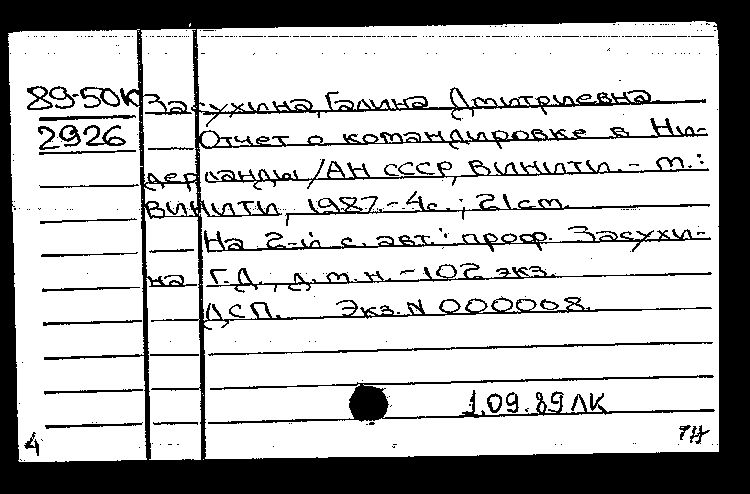 89-50К Засухина, Галина Дмитриевна.
2926 Отчет о командировке в Ни-
дерланды /АН СССР, ВИНИТИ. - М.:
ВИНИТИ, 1987. - 4с.; 21см.
На 2-й с. авт.: проф. Засухи-
на Г.Д., д.т.н. - 102 экз.
ДСП. Экз. N 000008.
1.09.89 ЛК
4